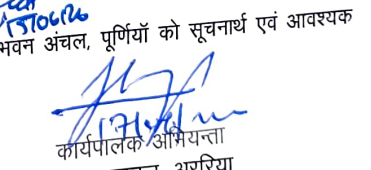 15/06/26
भवन अंचल, पूर्णियाँ को सूचनार्थ एवं आवश्यक
कार्यपालक अभियन्ता
अररिया